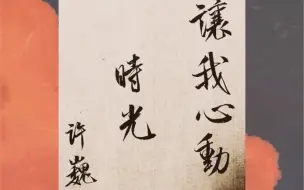 讓我心動
時光
许巍